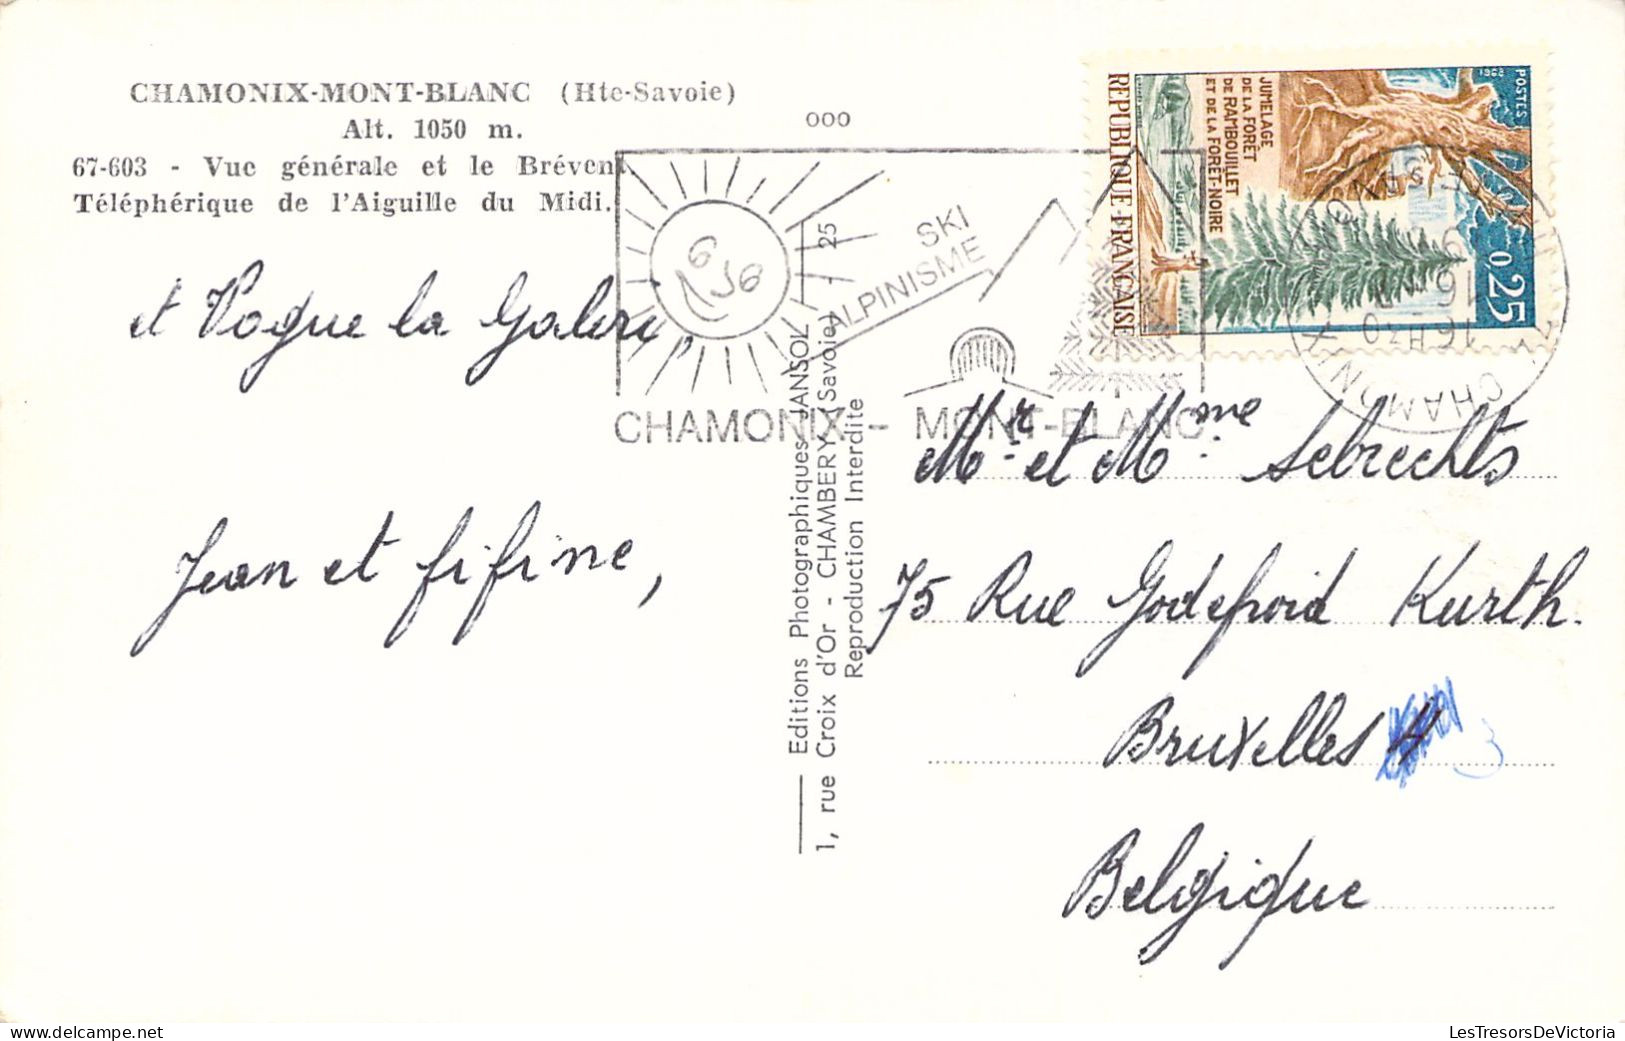 CHAMONIX-MONT-BLANC (Hte-Savoie)
Alt. 1050 m.
67-603 - Vue générale et le Brévent.
Téléphérique de l'Aiguille du Midi.
ooo
et Vogue la Galère,
Jean et fifine,
Editions Photographiques JANSOL - 25
1, rue Croix d'Or - CHAMBERY (Savoie)
Reproduction Interdite
SKI
ALPINISME
CHAMONIX - MONT-BLANC
REPUBLIQUE FRANÇAISE
JUMELAGE
DE LA FORÊT
DE RAMBOUILLET
ET DE LA FORÊT-NOIRE
POSTES
1968
0,25
16H30
CHAMONIX
Mr. et Mme. Sebrechts
75 Rue Godefroid Kurth.
Bruxelles 4 3
Belgique
LesTresorsDeVictoria